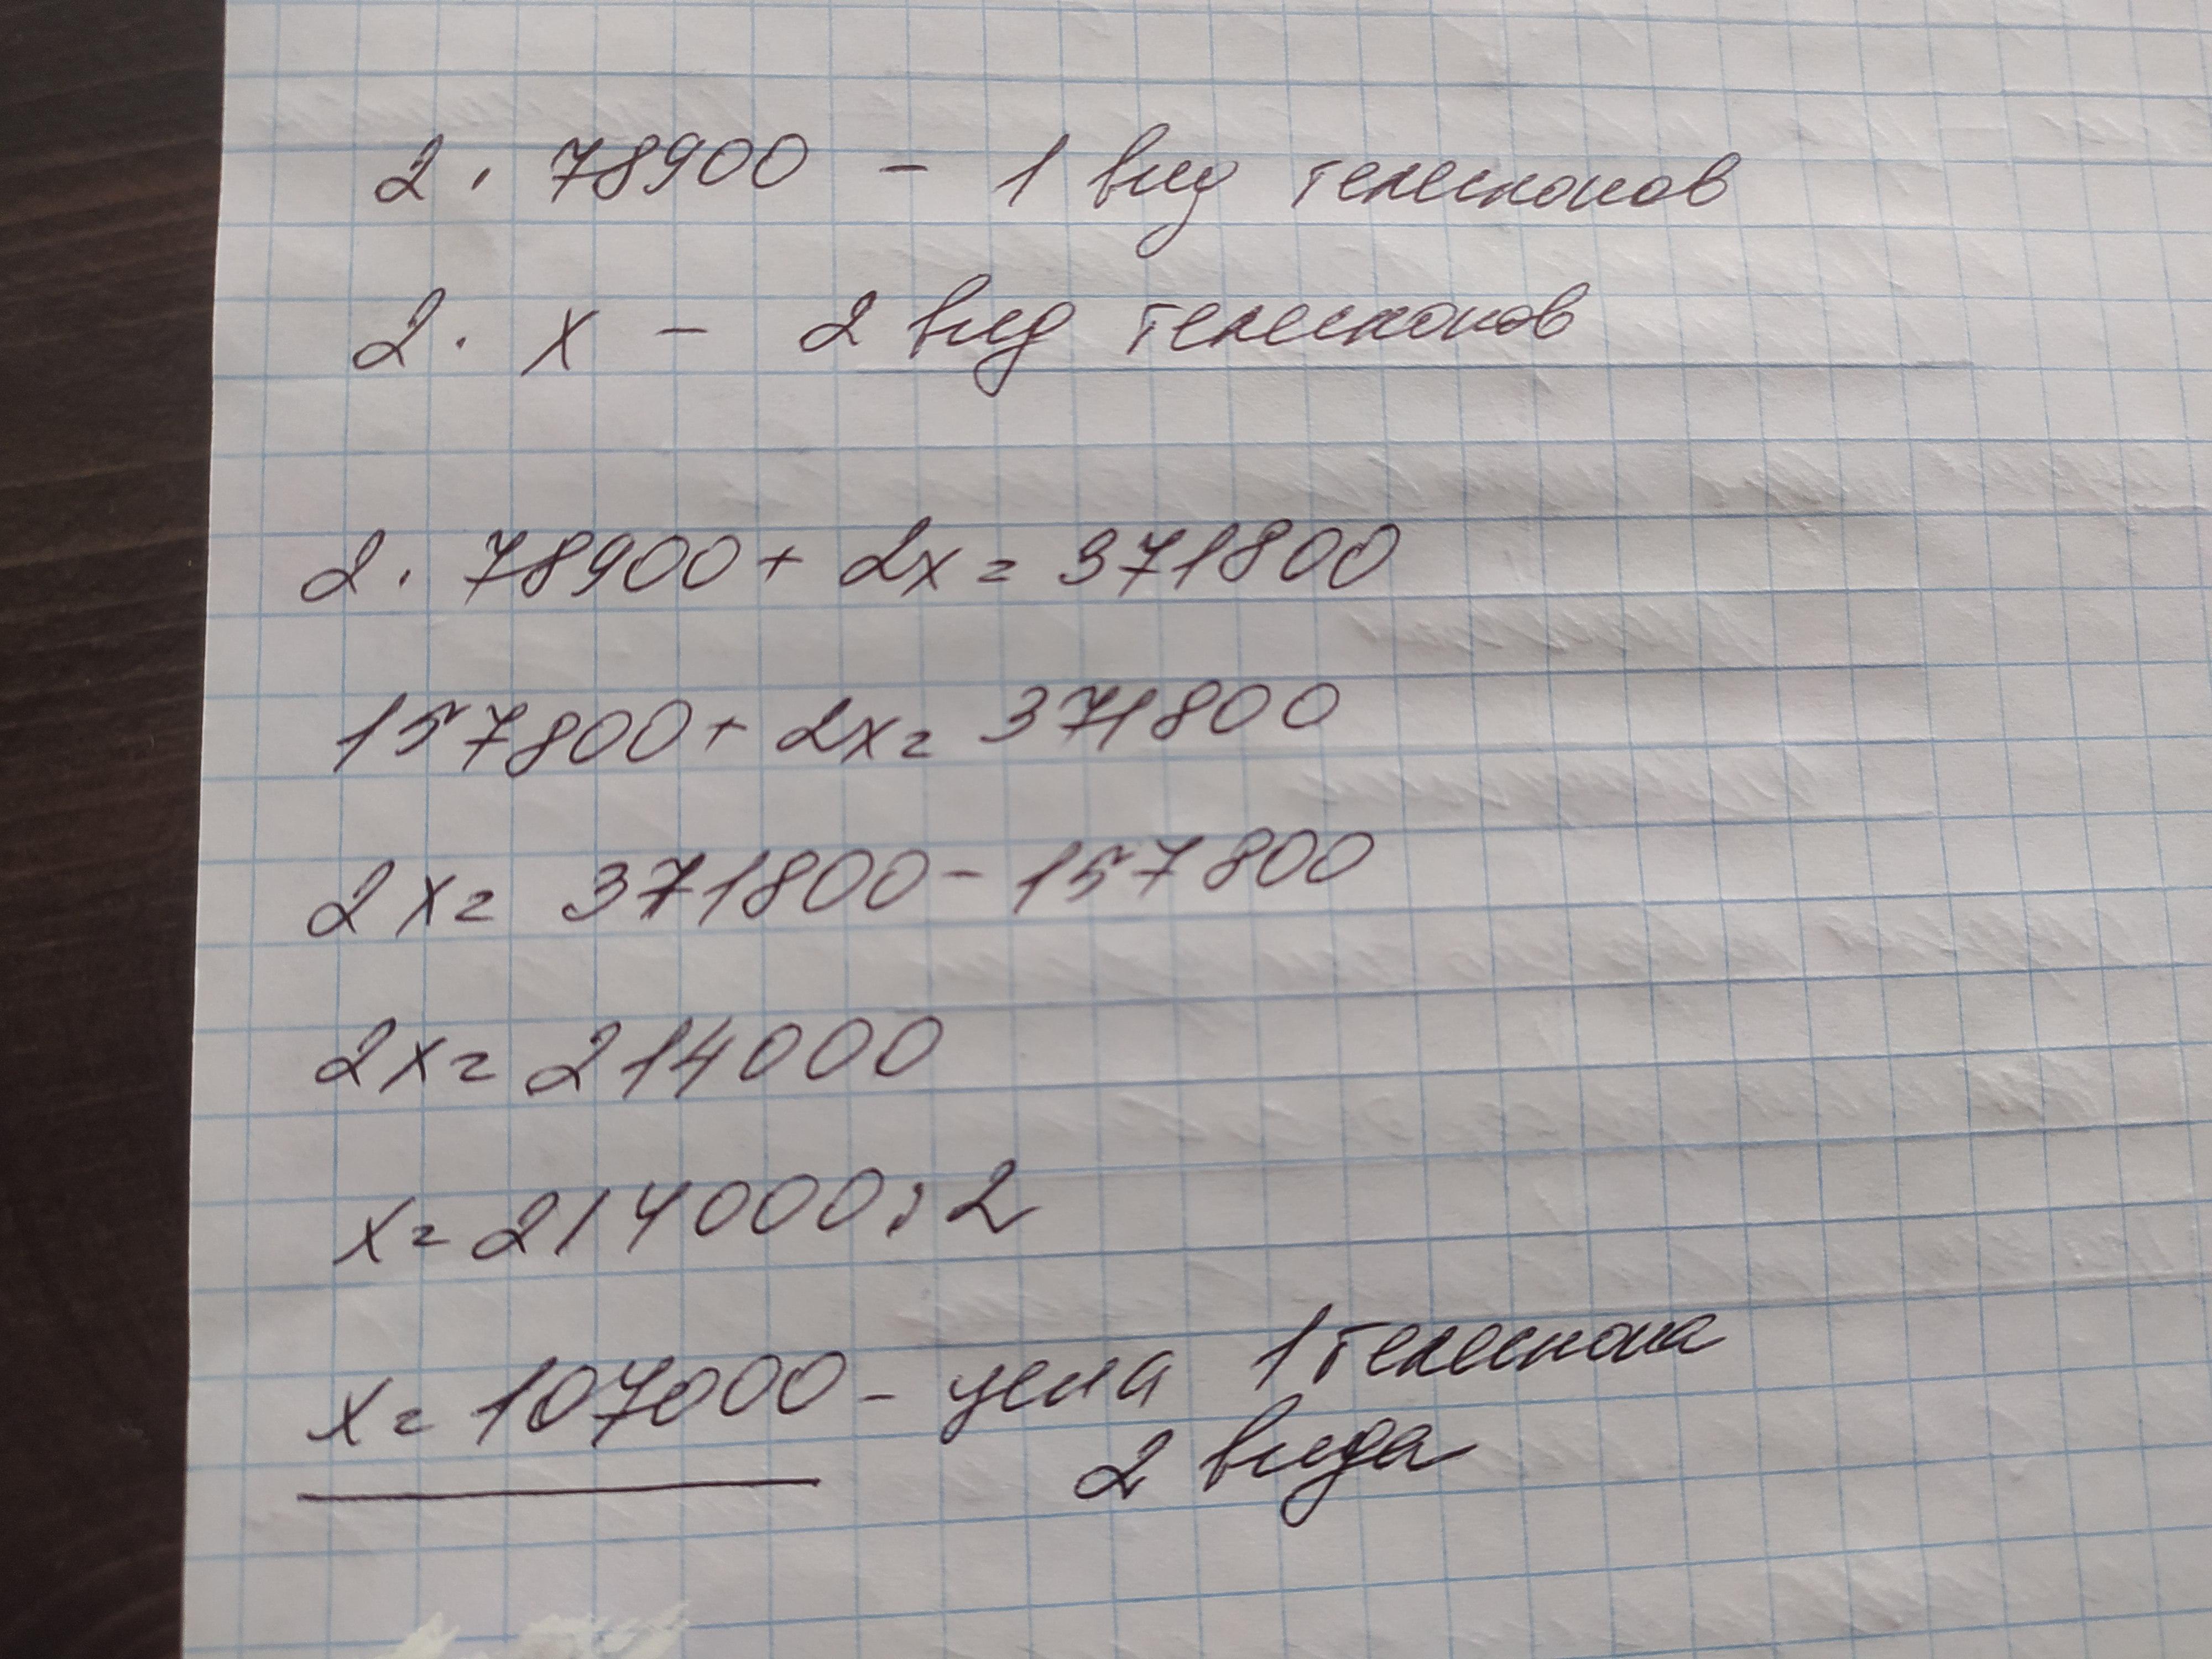 2 · 78900 - 1 вид телескопов
2 · x - 2 вид телескопов
2 · 78900 + 2x = 371800
157800 + 2x = 371800
2x = 371800 - 157800
2x = 214000
x = 214000 : 2
x = 107000 - цена 1 телескопа
2 вида